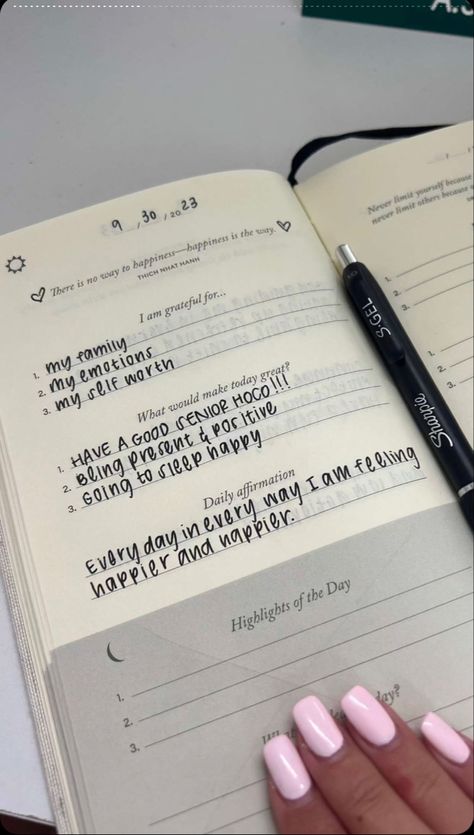 A.
9 / 30 / 20 23
There is no way to happiness—happiness is the way.
THICH NHAT HANH
I am grateful for...
1. my family
2. my emotions
3. my self worth
What would make today great?
1. HAVE A GOOD SENIOR HOCO!!!
2. Being present & positive
3. Going to sleep happy
Daily affirmation
Every day in every way I am feeling
happier and happier.
Highlights of the Day
1.
2.
3.
day?
Never limit yourself because
never limit others because
1.
2.
3.
1.
2.
S·GEL
Sharpie